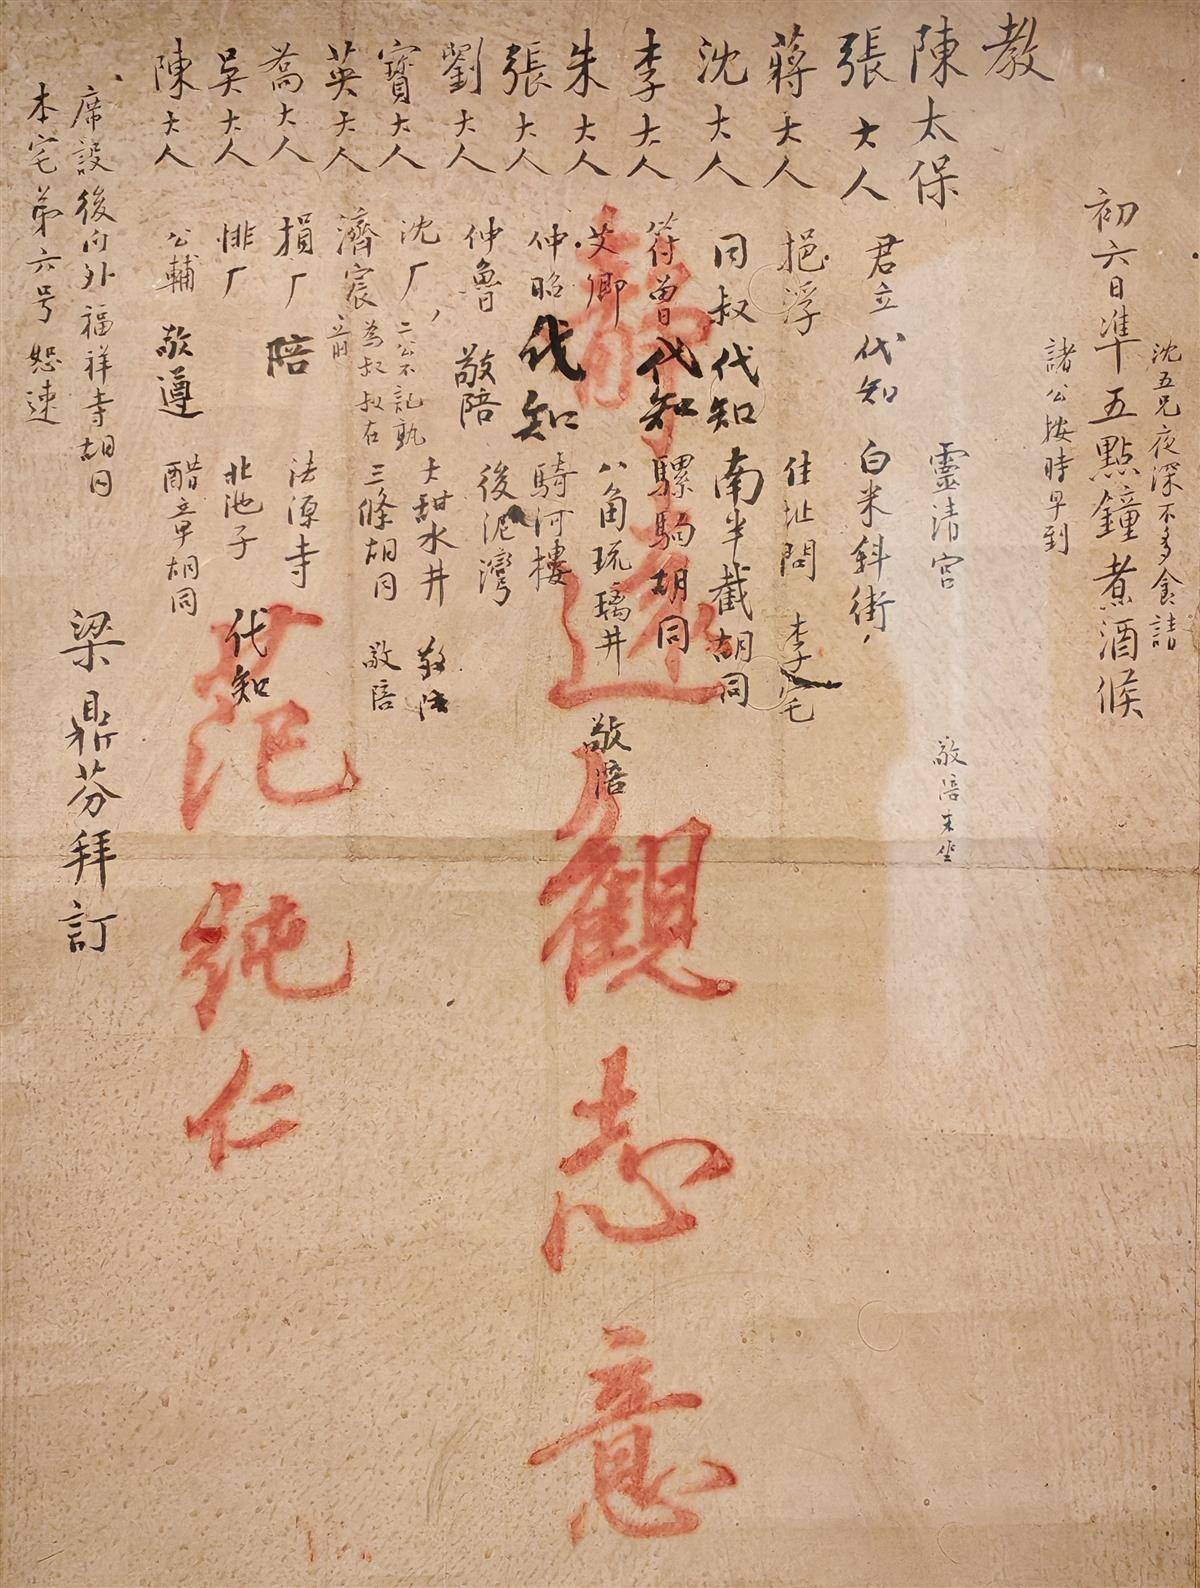 初六日準五點鐘煮酒候
沈五兄夜深不多食請
諸公按時早到
教
陳太保 靈清宮 敬陪末坐
張大人 君立 代知 白米斜街
蔣大人 挹浮 住址問李宅
沈大人 同叔 代知 南半截胡同
李大人 符曾 代知 騾駒胡同
朱大人 艾卿 八角琉璃井 敬陪
張大人 仲昭 代知 騎河樓
劉大人 仲魯 敬陪 後泥灣
寶大人 沈厂 二公不記孰 大甜水井 敬陪
英大人 濟宸 為叔叔在前 三條胡同 敬陪
喬大人 損厂 陪 法源寺
吳大人 悱厂 北池子 代知
陳大人 公輔 敬遵 醋章胡同
席設後門外福祥寺胡同
本宅第六号恕速
梁鼎芬拜訂
靜遠觀志意
范純仁